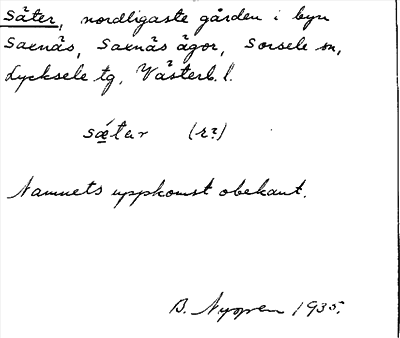 Säter, nordligaste gården i byn
Saxnäs, Saxnäs ägor, Sorsele sn,
Lycksele tg, Västerb. l.
sǽtar (r?)
Namnets uppkomst obekant.
B. Nyppen 1935.